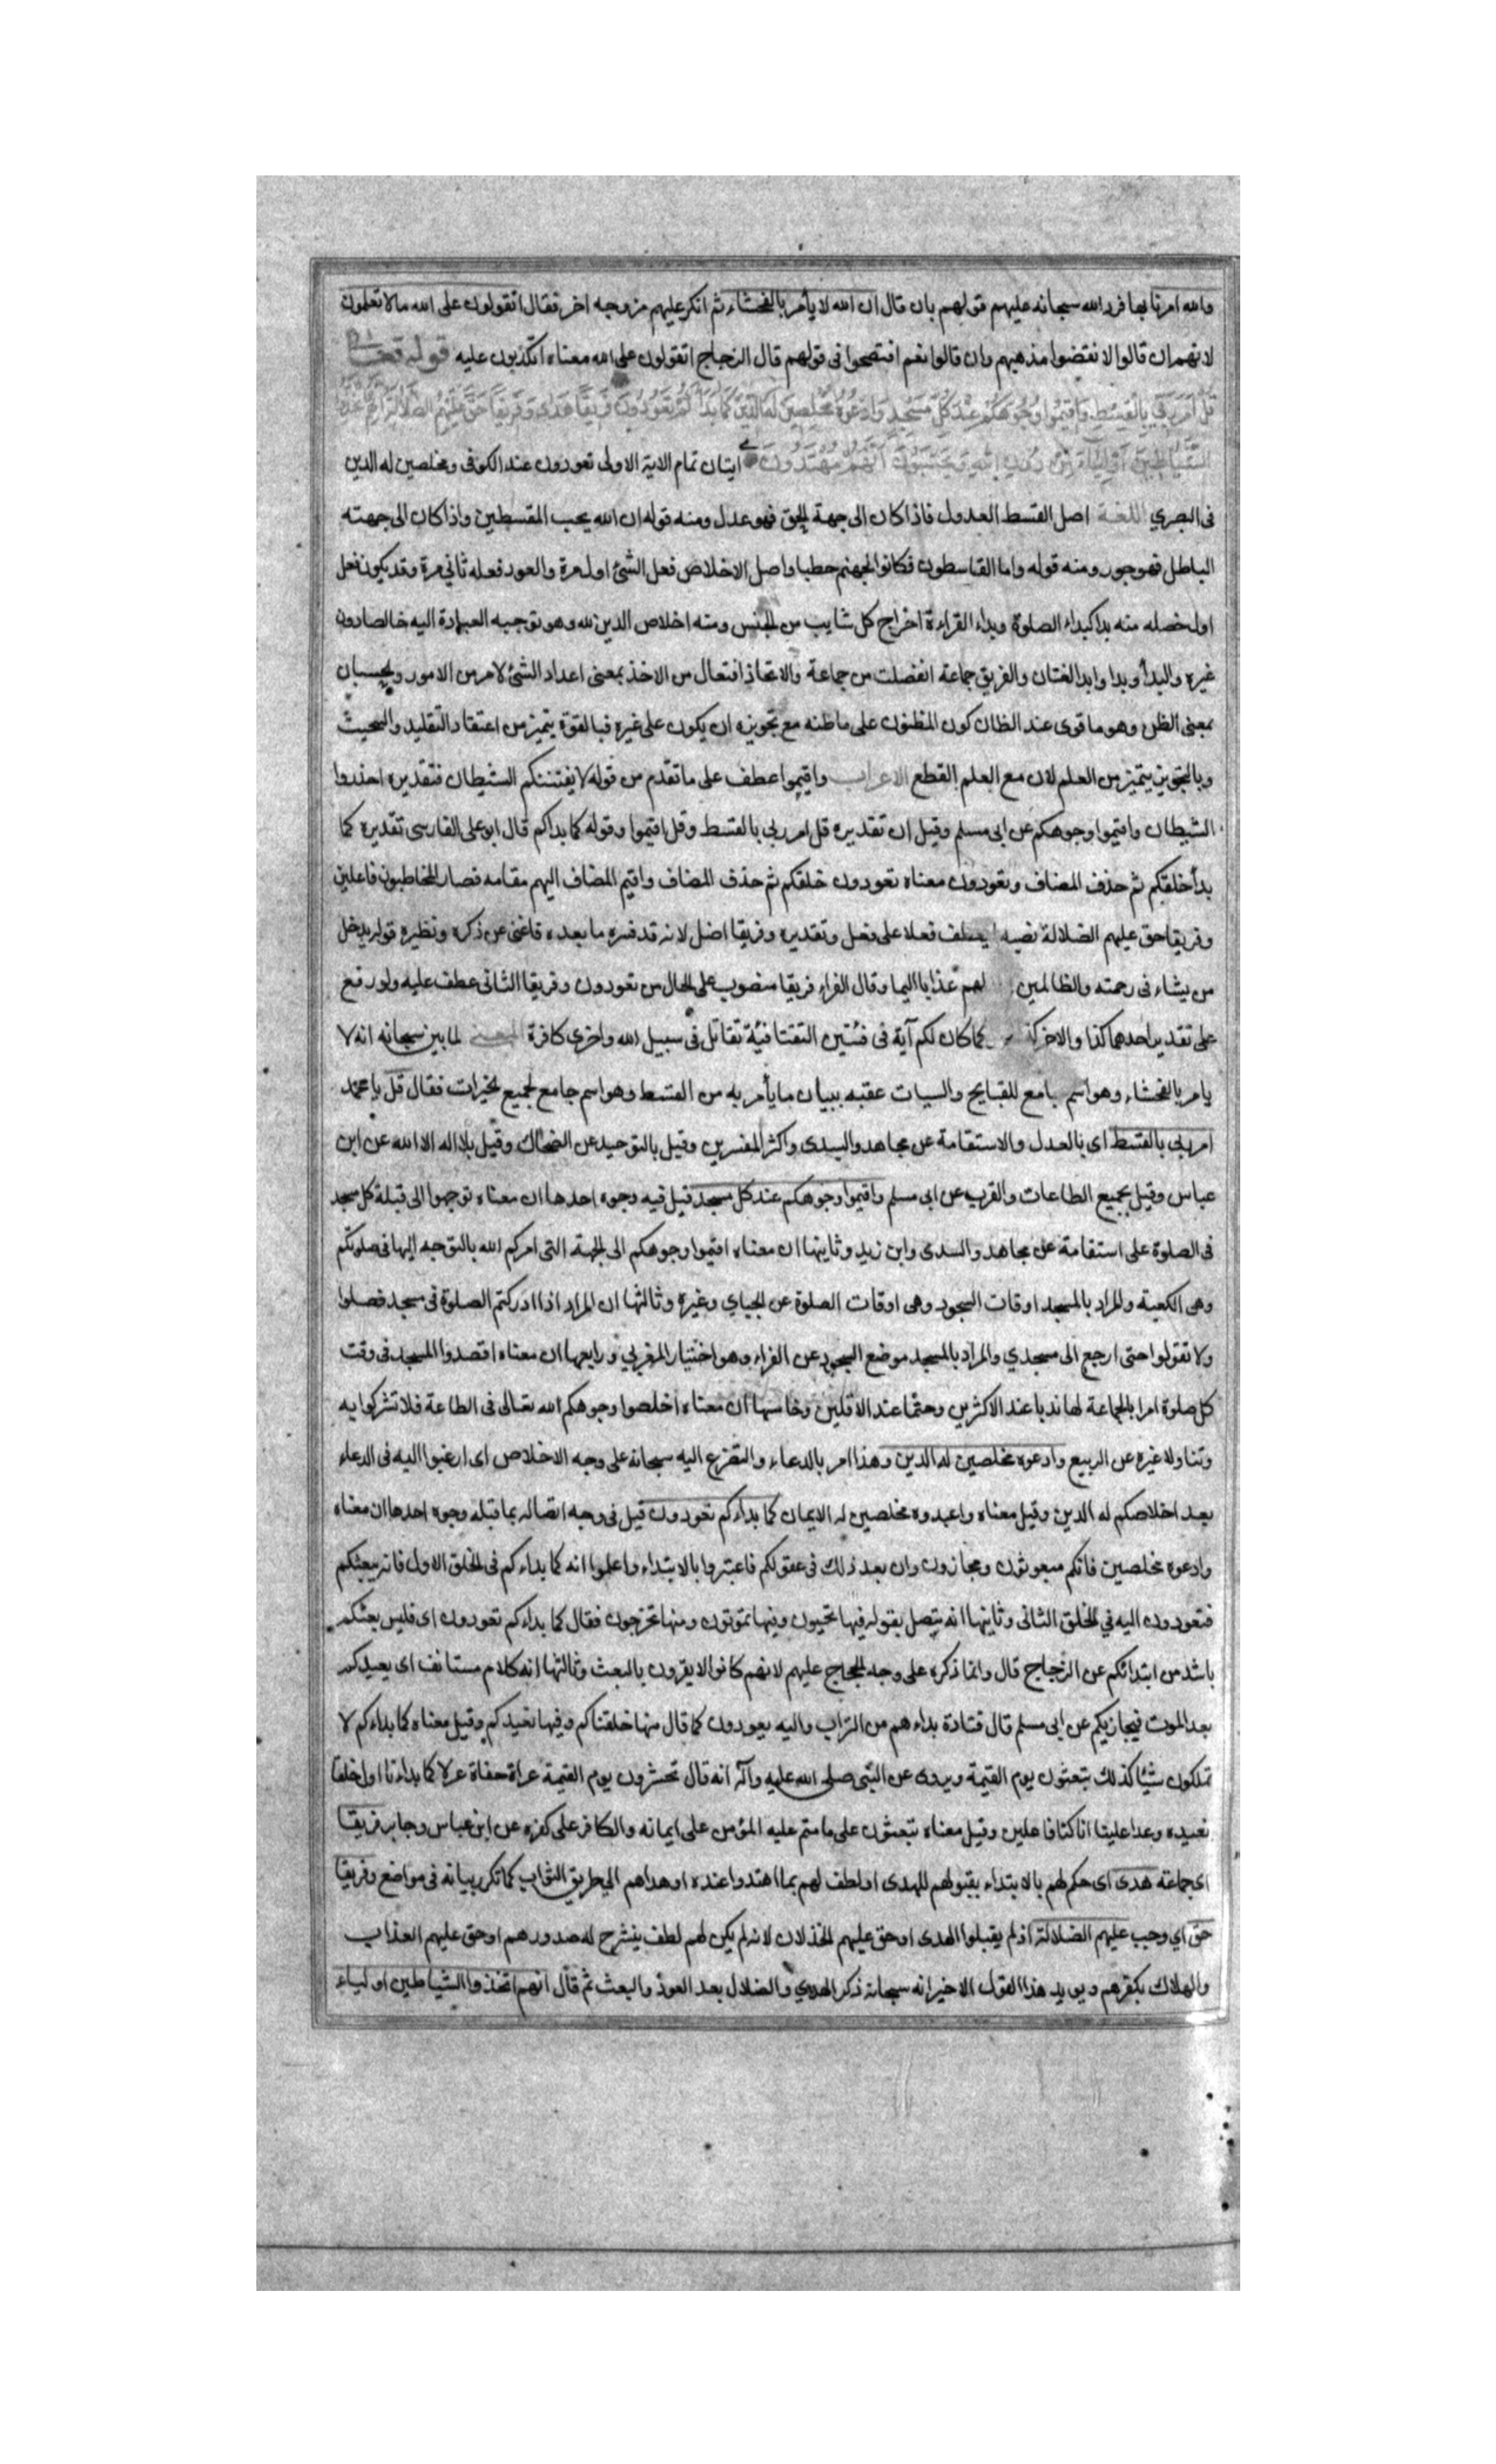 والله امرنا بها فرد الله سبحانه عليهم قولهم بان قال ان الله لا يأمر بالفحشاء ثم انكر عليهم من وجه اخر فقال اتقولون على الله مالا تعلمون
لانهم ان قالوا لا نقضوا مذهبهم وان قالوا نعم افتضحوا فى قولهم قال الزجاج اتقولون على الله معناه اتكذبون عليه قوله تعالى
قُلْ اَمَرَ رَبِّي بِالْقِسْطِ وَاَقِيمُوا وُجُوهَكُمْ عِنْدَ كُلِّ مَسْجِدٍ وَادْعُوهُ مُخْلِصِينَ لَهُ الدِّينَ كَمَا بَدَأَكُمْ تَعُودُونَ فَرِيقًا هَدَى وَفَرِيقًا حَقَّ عَلَيْهِمُ الضَّلَالَةُ اِنَّهُمُ اتَّخَذُوا
الشَّيَاطِينَ اَوْلِيَاءَ مِنْ دُونِ اللهِ وَيَحْسَبُونَ اَنَّهُمْ مُهْتَدُونَ ايتان تمام الاية الاولى تعودون عند الكوفى ومخلصين له الدين
فى البصري اللغة اصل القسط العدول فاذا كان الى جهة الحق فهو عدل ومنه قوله ان الله يحب المقسطين واذا كان الى جهته
الباطل فهو جور ومنه قوله واما القاسطون فكانوا لجهنم حطبا واصل الاخلاص فعل الشئ اول مرة والعود فعله ثاني مرة وقد يكون فعل
اول خصله منه بدا كبداء الصلوة وبداء القراءة اخراج كل شايب من الجنس ومنه اخلاص الدين لله وهو توجيه العبادة اليه خالصا دون
غيره والبدأ وبدا وابدا لغتان والفريق جماعة انفصلت من جماعة والاتخاذ افتعال من الاخذ بمعنى اعداد الشئ لامر من الامور والحسبان
بمعنى الظن وهو ما قوى عند الظان كون المظنون على ما ظنه مع تجويزه ان يكون على غيره فبالقوة يتميز من اعتقاد التقليد والتبخيت
وبالتجويز يتميز من العلم لان مع العلم القطع الاعراب واقيموا عطف على ما تقدم من قوله لا يفتننكم الشيطان فتقديره احذروا
الشيطان واقيموا وجوهكم عن ابى مسلم وقيل ان تقديره قل امر ربى بالقسط وقل اقيموا وقوله كما بداكم قال ابو على الفارسى تقديره كما
بدأ خلقكم ثم حذف المضاف وتعودون معناه تعودون خلقكم ثم حذف المضاف واقيم المضاف اليهم مقامه فصار المخاطبون فاعلين
وفريقا حق عليهم الضلالة نصبه ليعطف فعلا على فعل وتقديره وفريقا اضل لانه قد فسره ما بعده فاغنى عن ذكره ونظيره قوله يدخل
من يشاء فى رحمته والظالمين لهم عذابا اليما وقال الفراء فريقا منصوب على الحال من تعودون وفريقا الثانى عطف عليه ولو رفع
على تقدير احدهما كذا والاخر كذا كما كان لكم آية فى فئتين التقتا فئة تقاتل فى سبيل الله واخرى كافرة المعنى لما بين سبحانه انه لا
يامر بالفحشاء وهو اسم جامع للقبايح والسيات عقبه ببيان ما يأمر به من القسط وهو اسم جامع لجميع الخيرات فقال قل يا محمد
امر ربى بالقسط اى بالعدل والاستقامة عن مجاهد والسدى واكثر المفسرين وقيل بالتوحيد عن الضحاك وقيل بلا اله الا الله عن ابن
عباس وقيل بجميع الطاعات والقرب عن ابى مسلم واقيموا وجوهكم عند كل مسجد قيل فيه وجوه احدها ان معناه توجهوا الى قبلة كل مسجد
فى الصلوة على استقامة عن مجاهد والسدى وابن زيد وثانيها ان معناه اقيموا وجوهكم الى الجهة التى امركم الله بالتوجه اليها فى صلوتكم
وهى الكعبة والمراد بالمسجد اوقات السجود وهى اوقات الصلوة عن الجباي وغيره وثالثها ان المراد اذا ادركتم الصلوة فى مسجد فصلوا
ولا تقولوا حتى ارجع الى مسجدي والمراد بالمسجد موضع السجود عن الفراء وهو اختيار المغربي ورابعها ان معناه اقصدوا المسجد فى وقت
كل صلوة امرا بالجماعة لها ندبا عند الاكثرين وحتما عند الاقلين وخامسها ان معناه اخلصوا وجوهكم الله تعالى فى الطاعة فلا تشركوا به
وثنا ولا غيره عن الربيع وادعوه مخلصين له الدين وهذا امر بالدعاء والتضرع اليه سبحانه على وجه الاخلاص اى ارغبوا اليه فى الدعاء
بعد اخلاصكم له الدين وقيل معناه واعبدوه مخلصين له الايمان كما بداءكم تعودون قيل فى وجه اتصاله بما قبله وجوه احدها ان معناه
وادعوه مخلصين فانكم مبعوثون ومجازون وان بعد ذلك فى عقولكم فاعتبروا بالابتداء واعلموا انه كما بداءكم فى الخلق الاول فانه يبعثكم
فتعودون اليه في الخلق الثانى وثانيها انه يتصل بقوله فيها تحيون وفيها تموتون ومنها تخرجون فقال كما بداءكم تعودون اى فليس بعثكم
باشد من ابتدائكم عن الزجاج قال وانما ذكره على وجه الحجاج عليهم لانهم كانوا لا يقرون بالبعث وثالثها انه كلام مستانف اى يعيدكم
بعد الموت فيجازيكم عن ابى مسلم قال قتادة بداءهم من التراب واليه يعودون كما قال منها خلقناكم وفيها نعيدكم وقيل معناه كما بداءكم لا
تملكون شيئا كذلك تبعثون يوم القيمة ويروى عن النبى صلى الله عليه وآله انه قال تحشرون يوم القيمة عراة حفاة عرلا كما بداءنا اول خلق
نعيده وعدا علينا انا كنا فاعلين وقيل معناه تبعثون على ما متم عليه المؤمن على ايمانه والكافر على كفره عن ابن عباس وجابر فريقا
اى جماعة هدى اى حكم لهم بالابتداء بقبولهم للهدى او لطف لهم بما اهتدوا عنده او هداهم الى طريق الثواب كما تكرر بيانه فى مواضع وفريقا
حق اي وجب عليهم الضلالة اذ لم يقبلوا الهدى او حق عليهم الخذلان لانه لم يكن لهم لطف ينشرح له صدورهم او حق عليهم العذاب
والهلاك بكفرهم ويويد هذا القول الاخير انه سبحانه ذكر الهدي والضلال بعد العود والبعث ثم قال انهم اتخذوا الشياطين اولياء